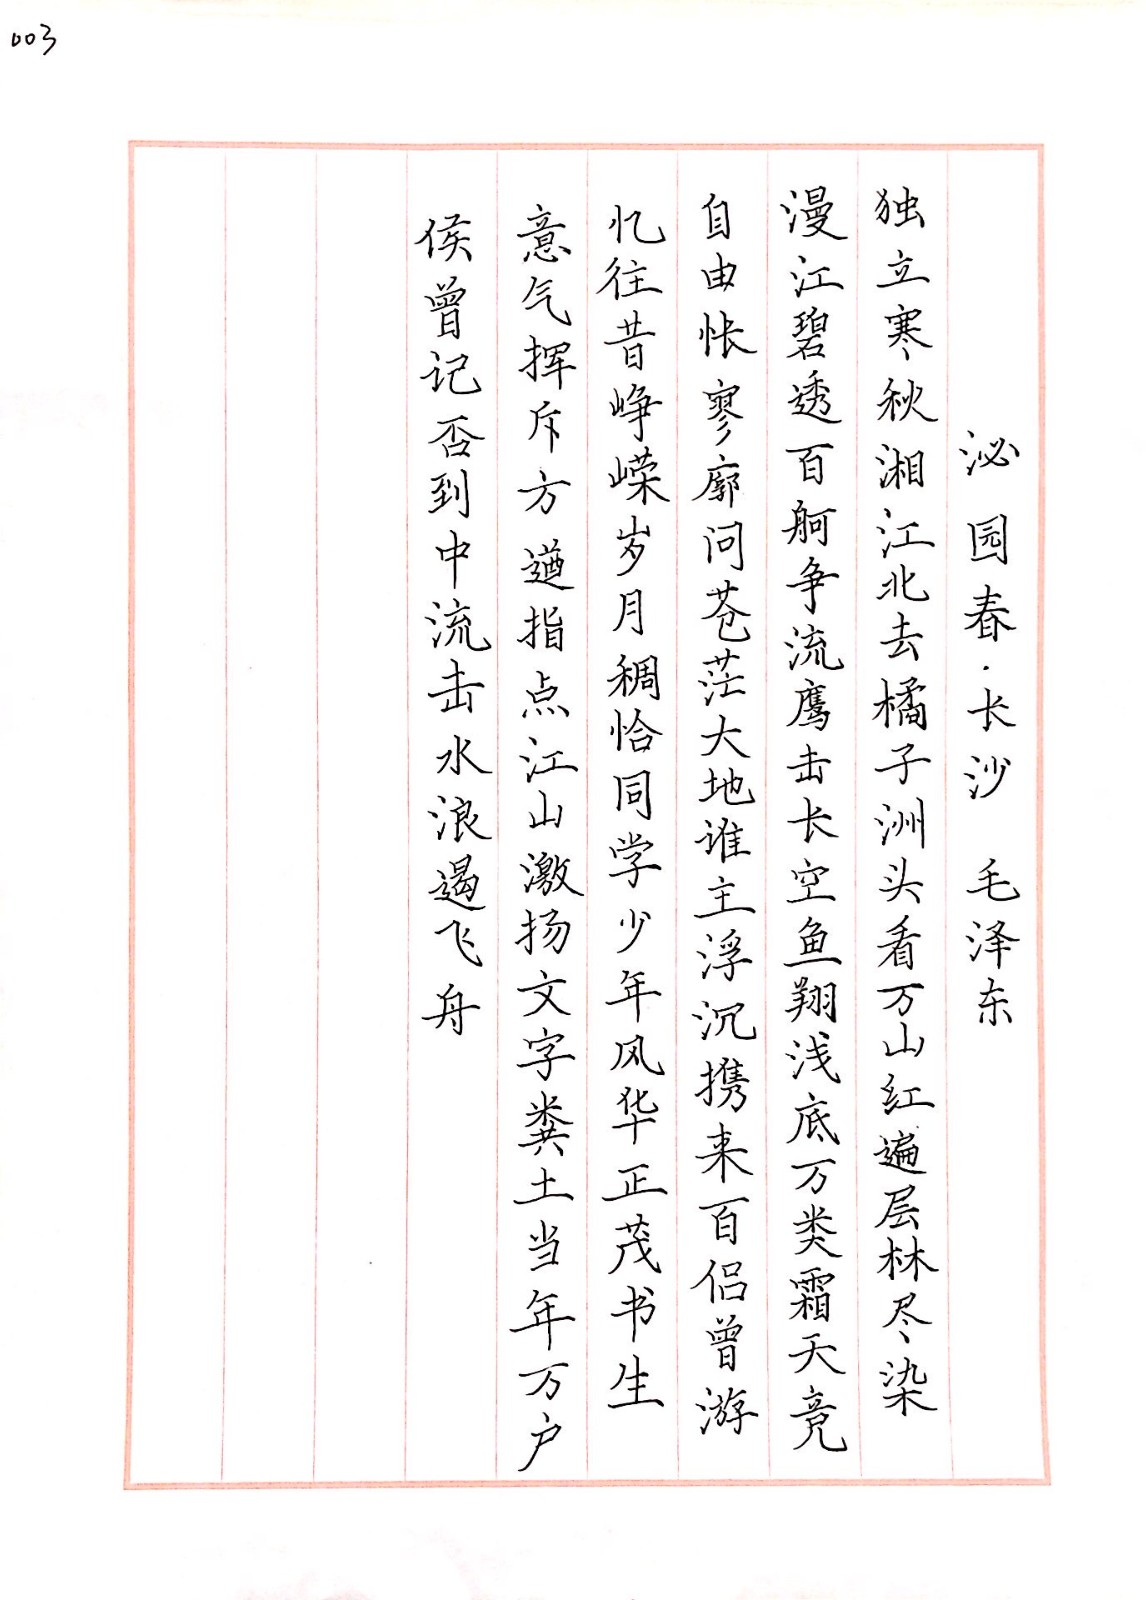 003
泌园春·长沙 毛泽东
独立寒秋湘江北去橘子洲头看万山红遍层林尽染
漫江碧透百舸争流鹰击长空鱼翔浅底万类霜天竞
自由怅寥廓问苍茫大地谁主浮沉携来百侣曾游
忆往昔峥嵘岁月稠恰同学少年风华正茂书生
意气挥斥方遒指点江山激扬文字粪土当年万户
侯曾记否到中流击水浪遏飞舟